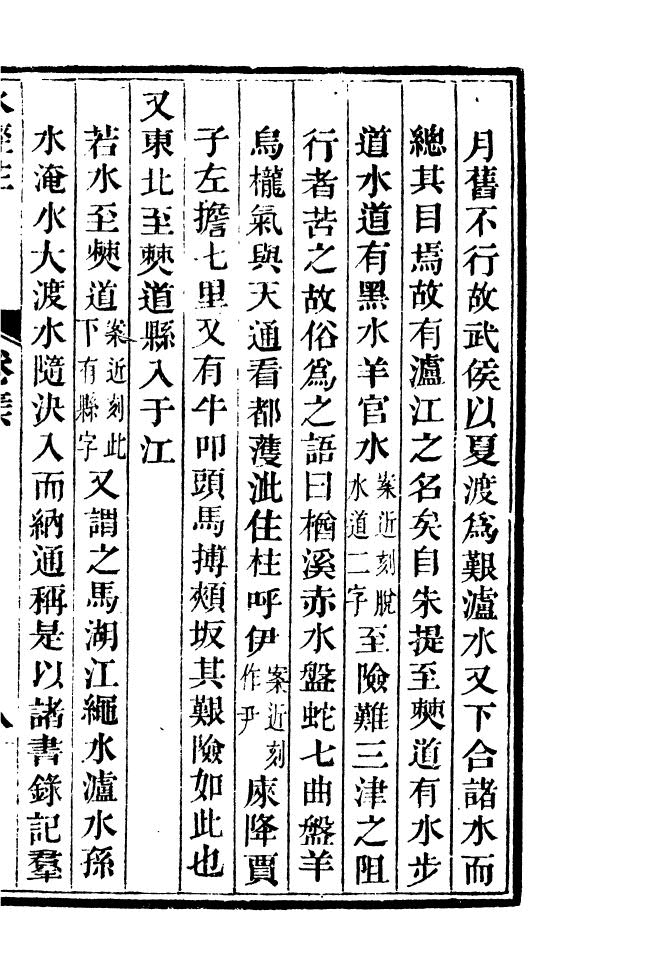 月舊不行故武侯以夏渡爲艱瀘水又下合諸水而
總其目焉故有瀘江之名矣自朱提至僰道有水步
道水道有黑水羊官水案近刻脫水道二字至險難三津之阻
行者苦之故俗爲之語曰楢溪赤水盤蛇七曲盤羊
烏櫳氣與天通看都濩泚住柱呼伊案近刻作尹庲降賈
子左擔七里又有牛叩頭馬搏頰坂其艱險如此也
又東北至僰道縣入于江
若水至僰道案近刻此下有縣字又謂之馬湖江繩水瀘水孫
水淹水大渡水隨決入而納通稱是以諸書錄記羣